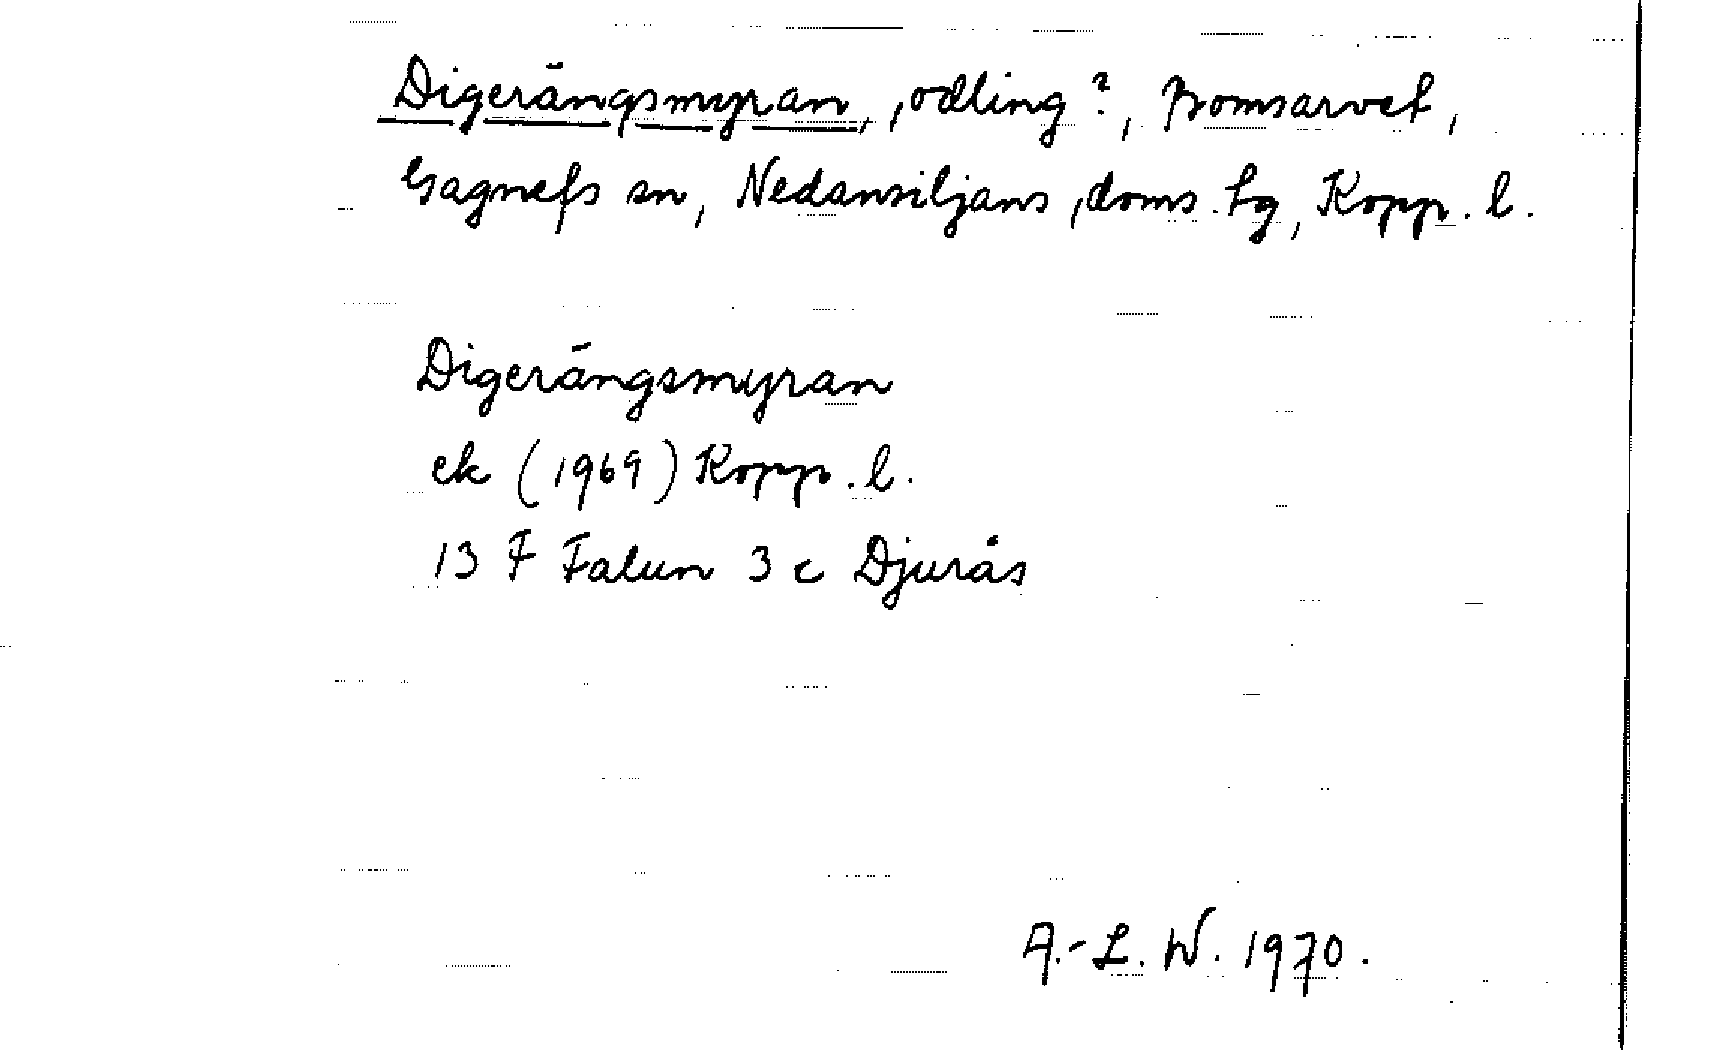 Digerängsmyran, odling?, Bomsarvet,
Gagnefs sn, Nedansiljans doms. tg, Kopp. l.
Digerängsmyran
ek (1969) Kopp. l.
13 F Falun 3 c Djurås
A.-L. W. 1970.